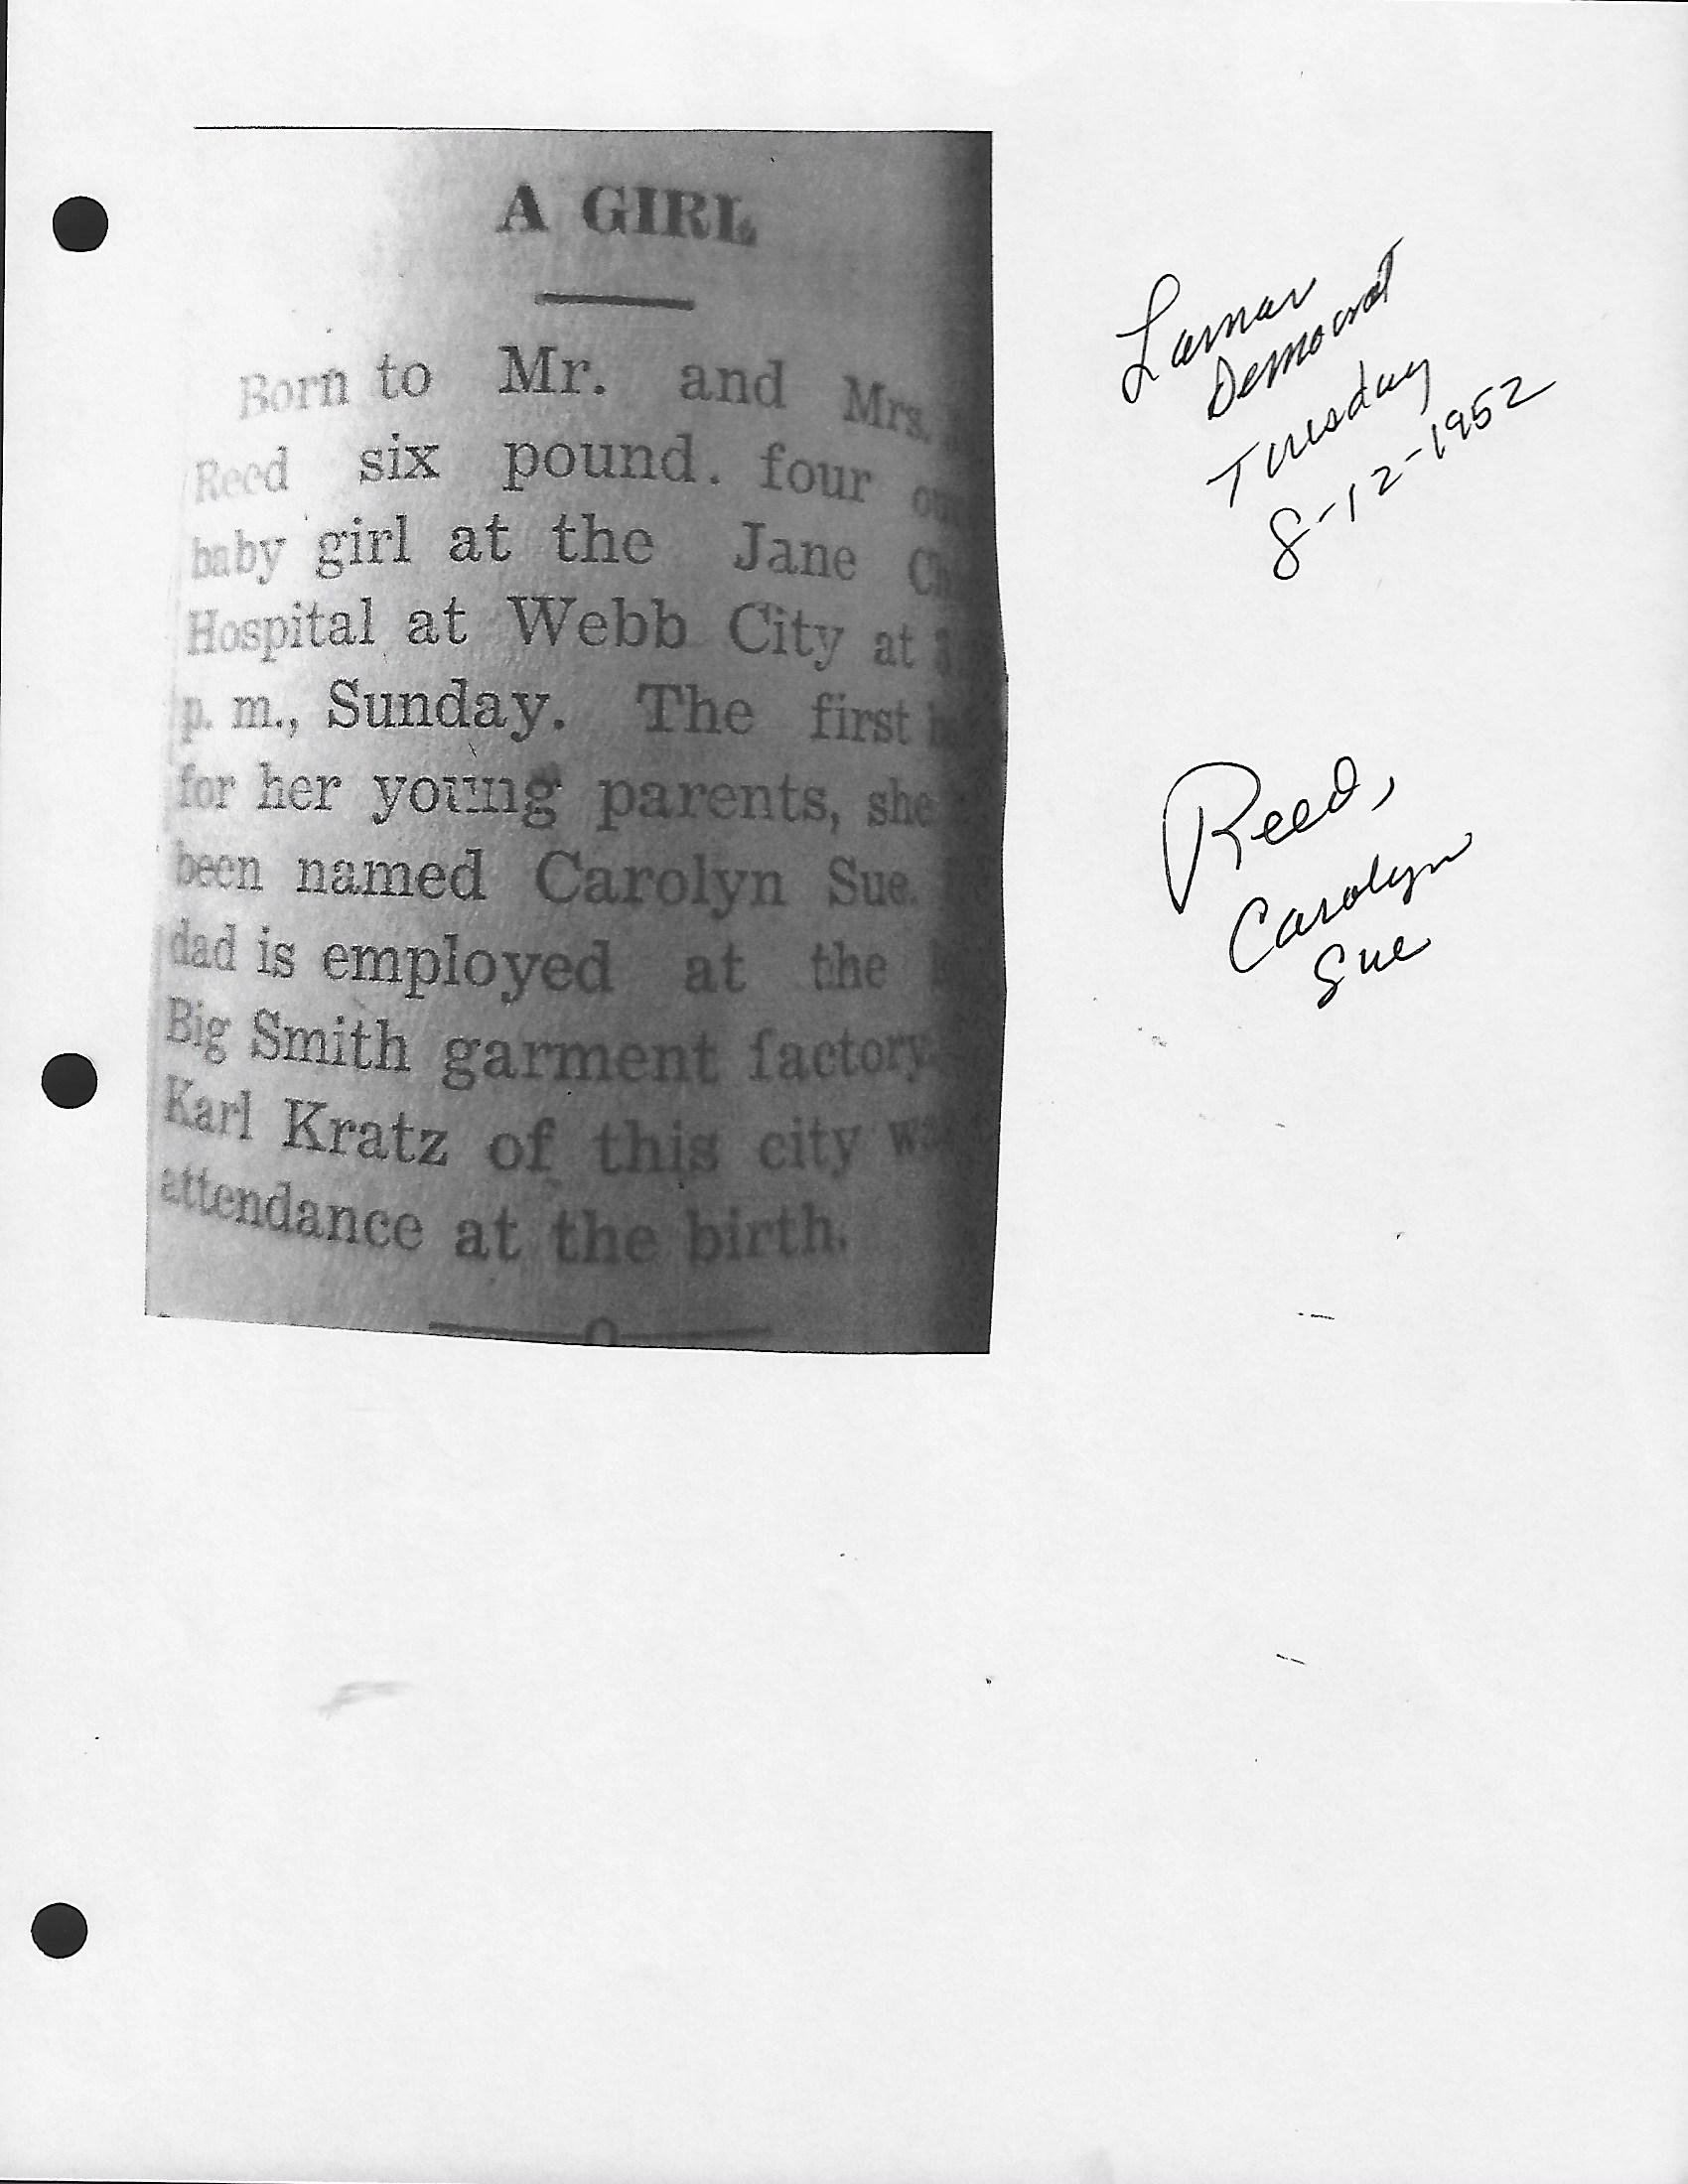 A GIRL
Born to Mr. and Mrs.
Reed six pound. four
baby girl at the Jane
Hospital at Webb City at
p. m., Sunday. The first
for her young parents, she
been named Carolyn Sue.
dad is employed at the
Big Smith garment factory.
Karl Kratz of this city
attendance at the birth.
Lamar
Democrat
Tuesday
8-12-1952
Reed,
Carolyn
Sue